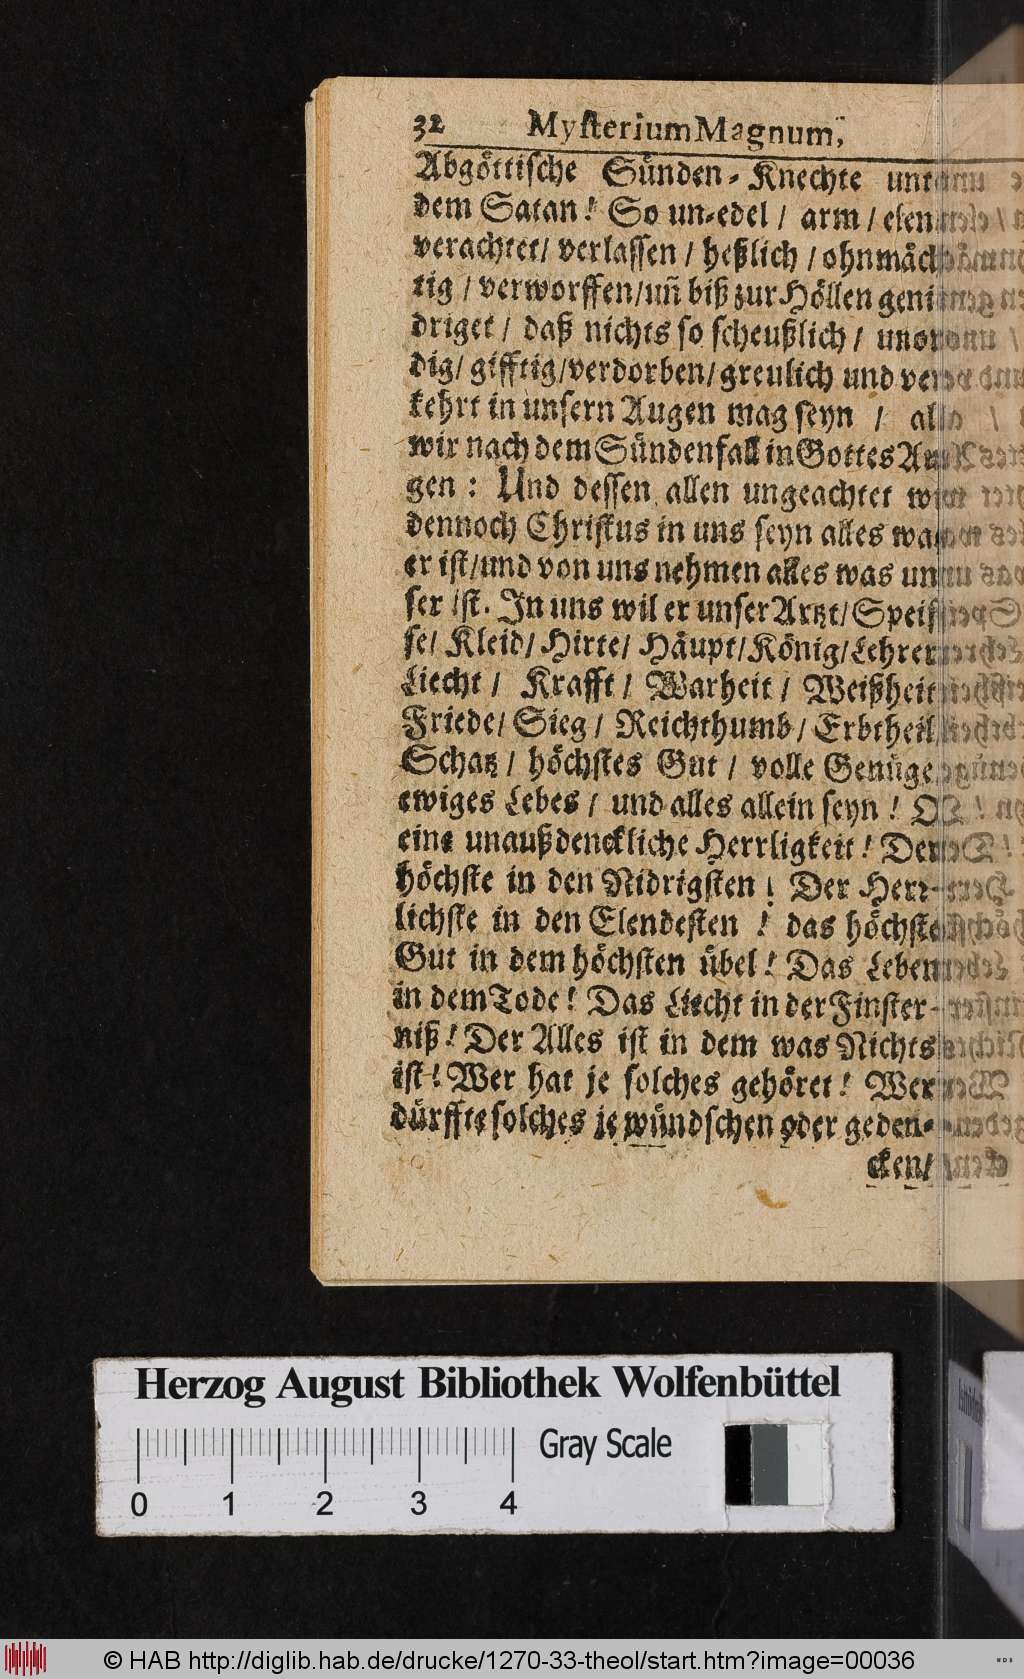 32 Mysterium Magnum,
Abgöttische Sünden-Knechte unter
dem Satan! So un-edel / arm / elen
verachtet/ verlassen / heßlich / ohnmäch
tig / verworffen/uñ biß zur Höllen geni
driget / daß nichts so scheußlich / unor
dig/ gifftig/verdorben/greulich und ver
kehrt in unsern Augen mag seyn / als
wir nach dem Sündenfall in Gottes Au
gen : Und dessen allen ungeachtet wil
dennoch Christus in uns seyn alles was
er ist/und von uns nehmen alles was un
ser ist. In uns wil er unser Artzt/Spei
se/ Kleid/ Hirte/ Häupt/König/Lehrer
Liecht / Krafft / Warheit / Weißheit
Friede/ Sieg / Reichthumb / Erbtheil
Schatz / höchstes Gut / volle Genüge
ewiges Lebes / und alles allein seyn ! O
eine unaußdenckliche Herrligkeit! Der
höchste in den Nidrigsten ! Der Herr-
lichste in den Elendesten ! das höchste
Gut in dem höchsten übel! Das Leben
in dem Tode! Das Liecht in der Finster-
niß! Der Alles ist in dem was Nichts
ist! Wer hat je solches gehöret! Wer
dürffte solches je wündschen oder geden-
cken/
Herzog August Bibliothek Wolfenbüttel
Gray Scale
0 1 2 3 4
© HAB http://diglib.hab.de/drucke/1270-33-theol/start.htm?image=00036